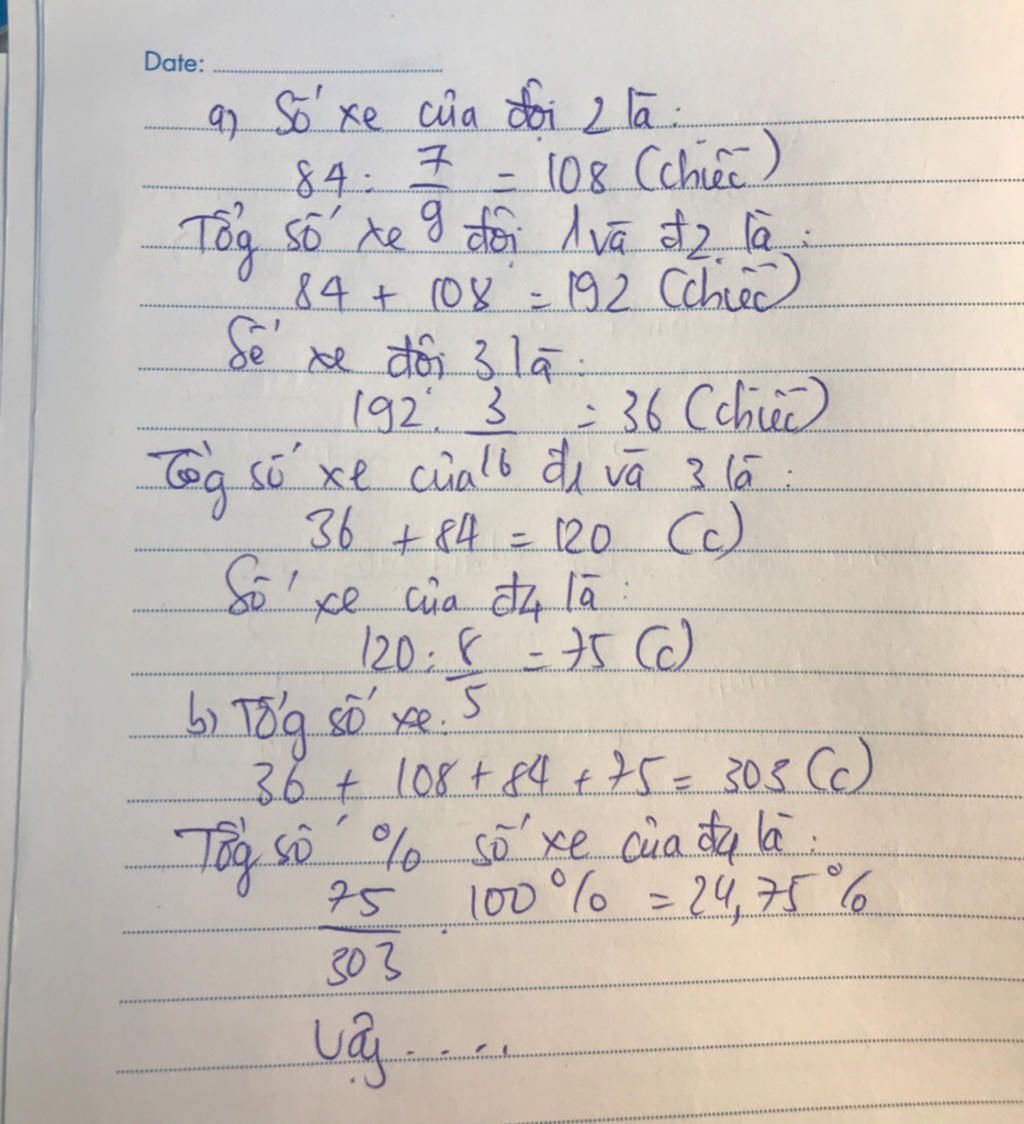 Date:
a) Số xe của đội 2 là:
84 : 7/9 = 108 (chiếc)
Tổg số xe đội 1 và đ2 là:
84 + 108 = 192 (chiếc)
Số xe đội 3 là:
192 . 3/16 = 36 (chiếc)
Tổg số xe của đ1 và 3 là:
36 + 84 = 120 (c)
Số xe của đ4 là:
120 : 8/5 = 75 (c)
b) Tổg số xe:
36 + 108 + 84 + 75 = 303 (c)
Tổg số % số xe của đ4 là:
75/303 . 100% = 24,75%
Vậy .....